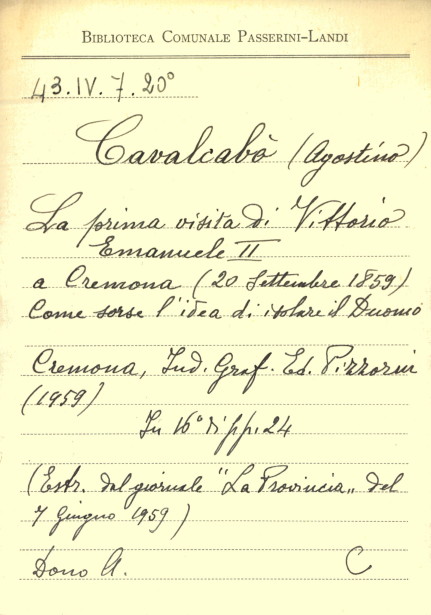 BIBLIOTECA COMUNALE PASSERINI-LANDI
43.IV.7.20°
Cavalcabò (Agostino)
La prima visita di Vittorio
Emanuele II
a Cremona (20 Settembre 1859)
Come sorse l'idea di isolare il Duomo
Cremona, Ind. Graf. Ed. Pizzorni
(1959)
In 16° di pp. 24
(Estr. dal giornale "La Provincia„ del
7 giugno 1959)
Dono A. C